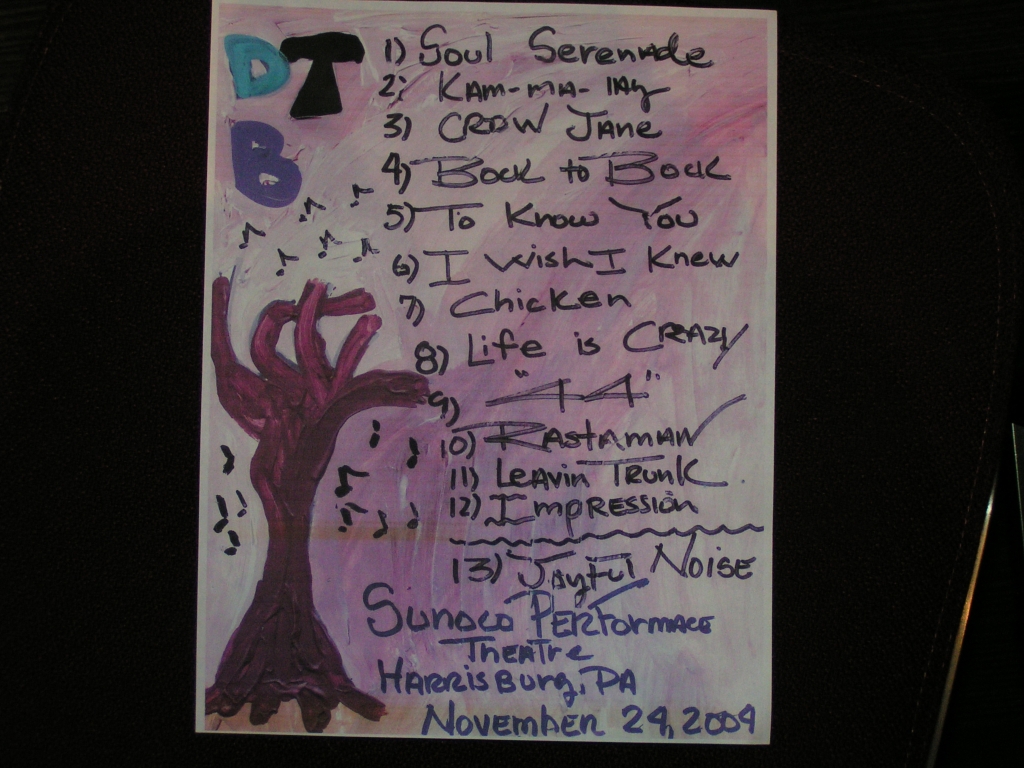 D T
B
1) Soul Serenade
2) Kam-ma-lay
3) Crow Jane
4) Bock to Bock
5) To Know You
6) I Wish I Knew
7) Chicken
8) Life is Crazy
9) "44"
10) Rastaman
11) Leavin Trunk
12) Impression
13) Joyful Noise
Sunoco Performace
Theatre
Harrisburg, PA
November 24, 2004